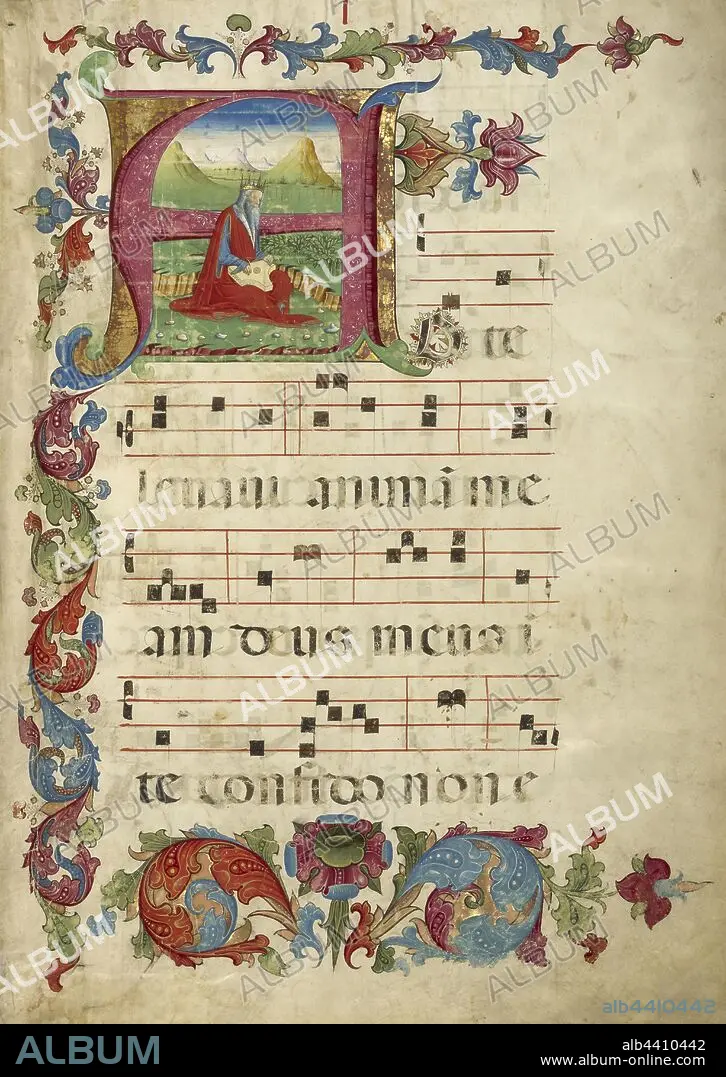 I
AD te
leuaui animā me
am deus meus i
te confido non e
alb4410442
ALBUM
alb4410442
www.album-online.com